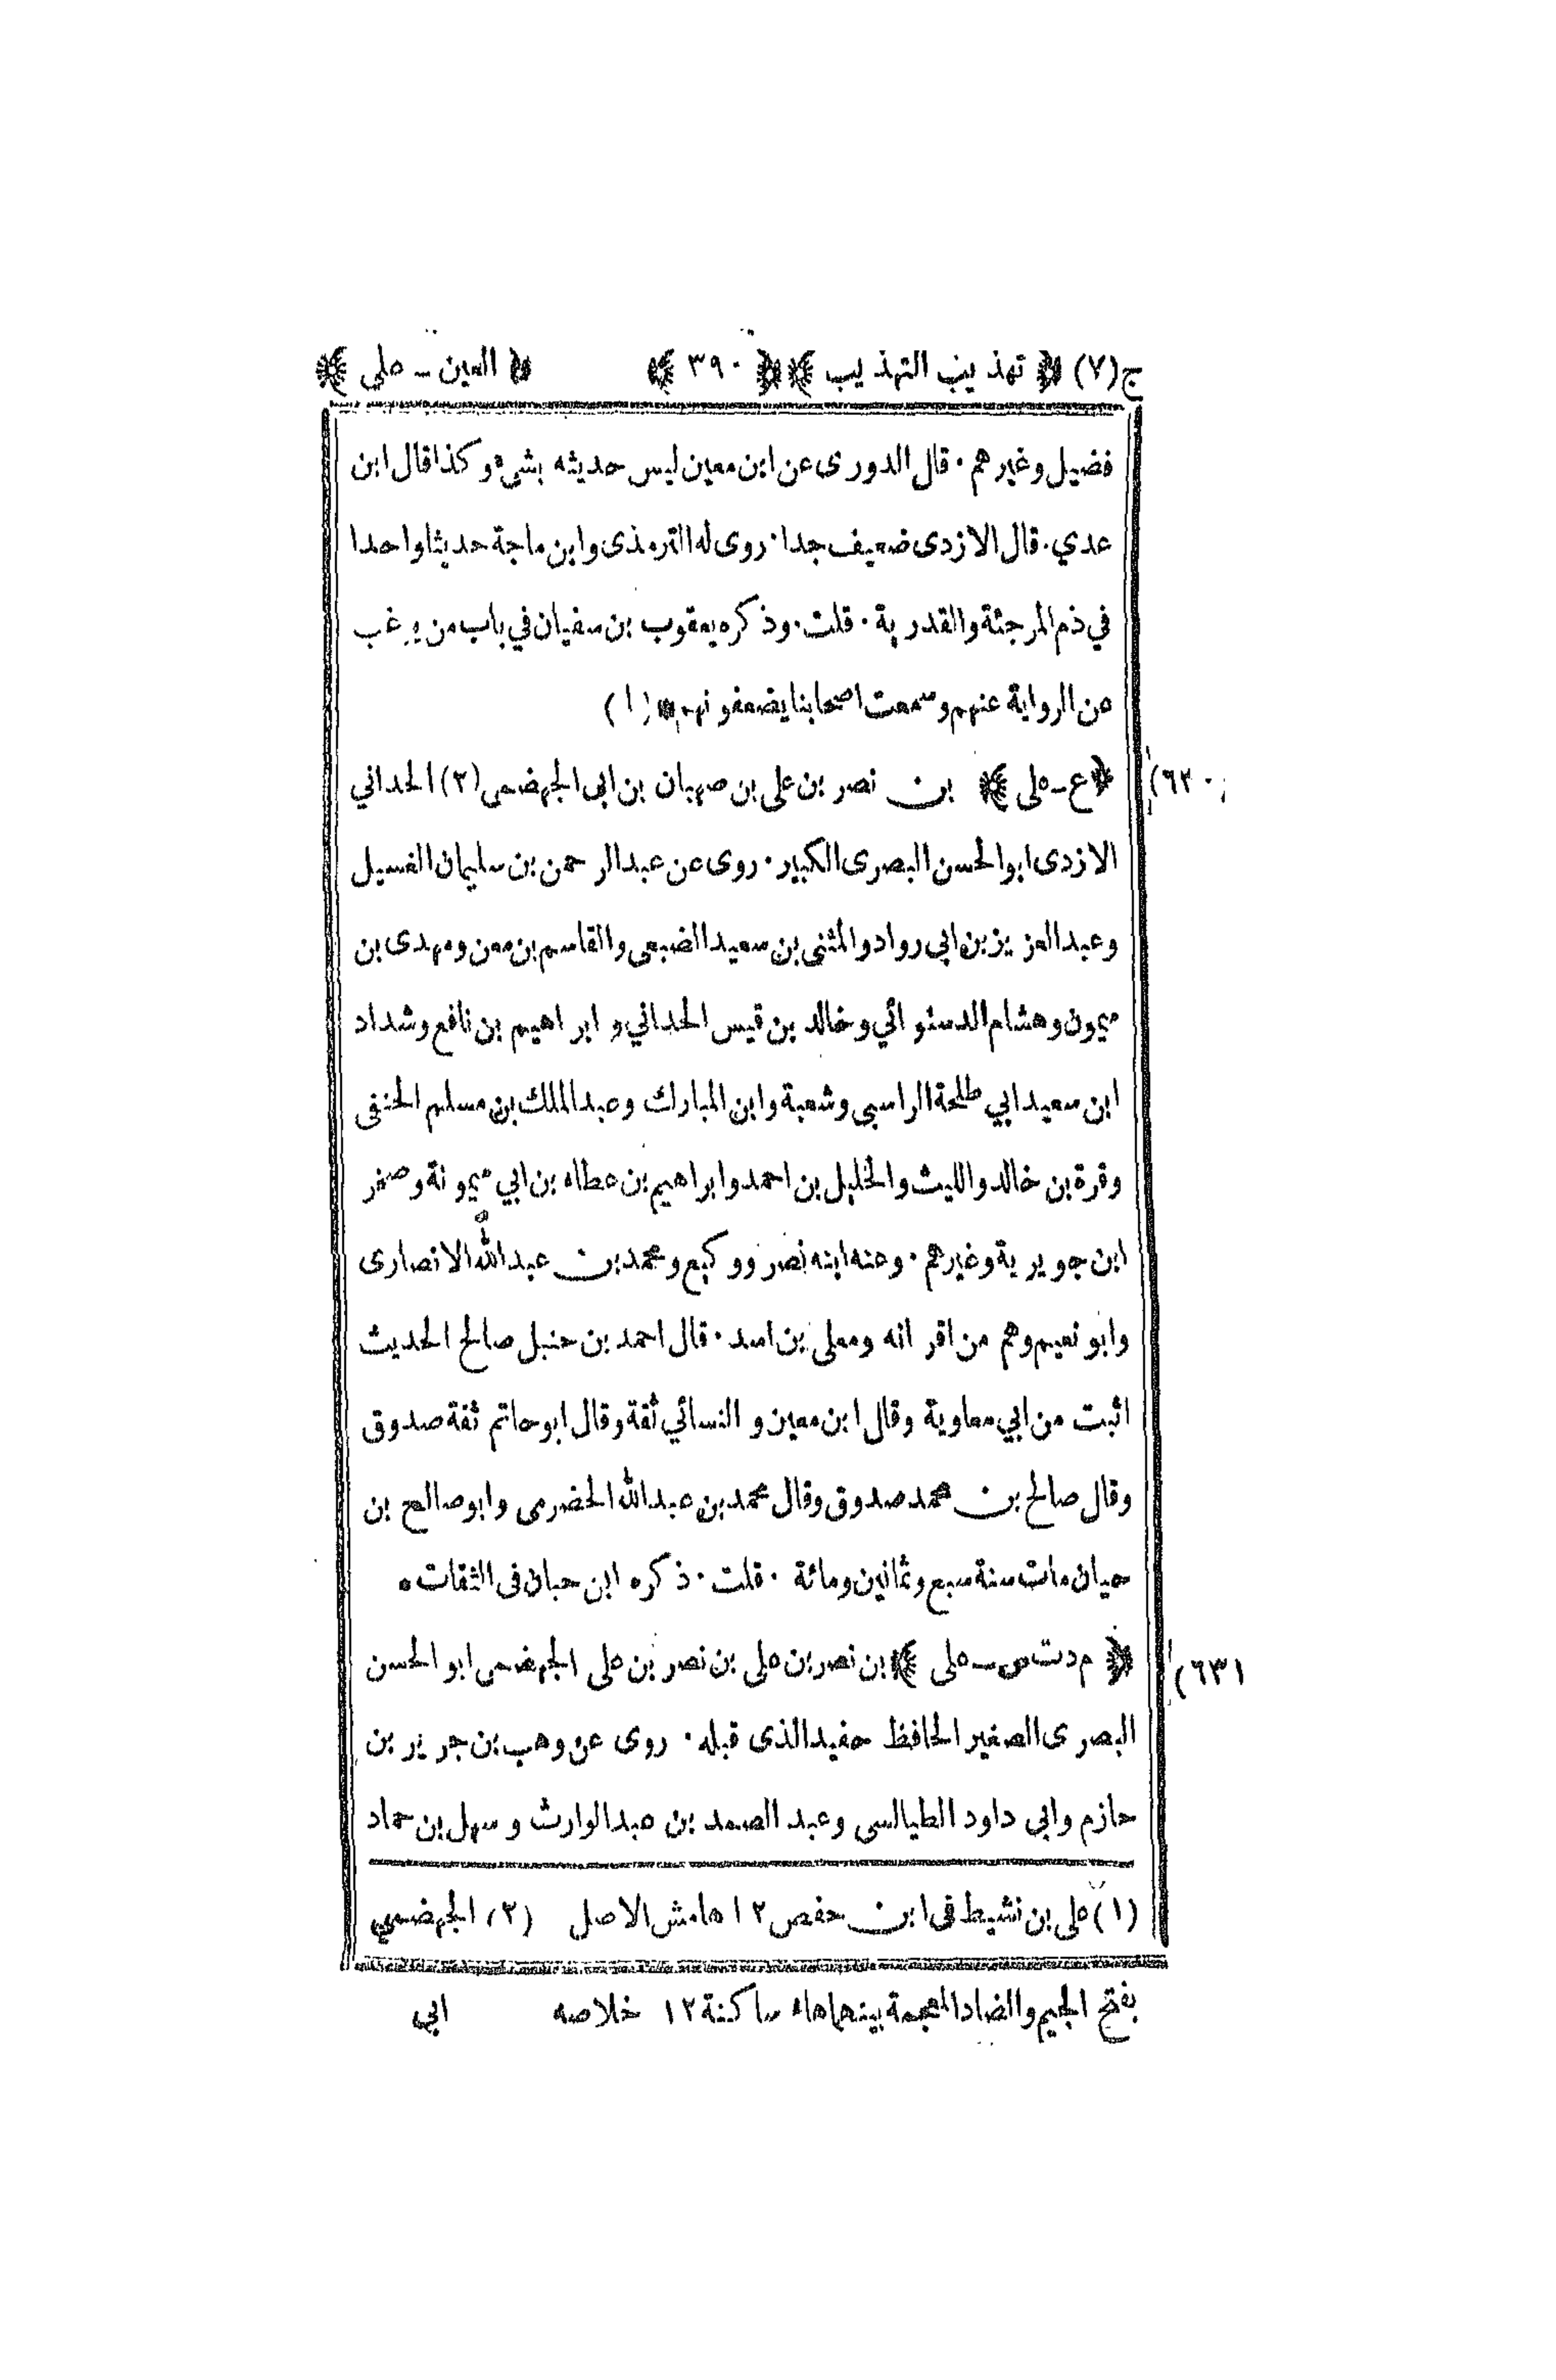 ج(٧) ﴿ تهذيب التهذيب ﴾ ﴿ ٣٩٠ ﴾ ﴿ العين - علي ﴾
فضيل وغيرهم. قال الدورى عن ابن معين ليس حديثه بشيء وكذا قال ابن
عدي. قال الازدى ضعيف جدا. روى له الترمذى وابن ماجة حديثا واحدا
في ذم المرجئة والقدرية. قلت. وذكره يعقوب بن سفيان في باب من يرغب
عن الرواية عنهم وسمعت اصحابنا يضعفونهم * (١)
(٦٣٠) ﴿ ع - على ﴾ بن نصر بن على بن صهبان بن ابى الجهضمى (٢) الحداني
الازدى ابو الحسن البصرى الكبير. روى عن عبد الرحمن بن سليمان الغسيل
وعبد العزيز بن ابي رواد والمثنى بن سعيد الضبعى والقاسم بن معن ومهدى بن
ميمون وهشام الدستوائي وخالد بن قيس الحداني و ابراهيم بن نافع وشداد
ابن سعيد ابي طلحة الراسبى وشعبة وابن المبارك وعبد الملك بن مسلم الحنفى
وقرة بن خالد والليث والخليل بن احمد وابراهيم بن عطاء بن ابي ميمونة وصخر
ابن جويرية وغيرهم. وعنه ابنه نصر ووكيع ومحمد بن عبد الله الانصارى
وابو نعيم وهم من اقرانه ومعلى بن اسد. قال احمد بن حنبل صالح الحديث
اثبت من ابي معاوية وقال ابن معين و النسائي ثقة وقال ابو حاتم ثقة صدوق
وقال صالح بن محمد صدوق وقال محمد بن عبد الله الحضرمى وابو صالح بن
حيان مات سنة سبع وثمانين ومائة. قلت. ذكره ابن حبان فى الثقات *
(٦٣١ ﴿ م د ت س - على ﴾ بن نصر بن على بن نصر بن على الجهضمى ابو الحسن
البصرى الصغير الحافظ حفيد الذى قبله. روى عن وهب بن جرير بن
حازم وابي داود الطيالسى وعبد الصمد بن عبد الوارث و سهل بن حماد
(١) على بن نشيط فى ابن حفص ١٢ هامش الاصل (٢) الجهضمي
بفتح الجيم والضاد المعجمة بينهما هاء ساكنة ١٢ خلاصه ابي